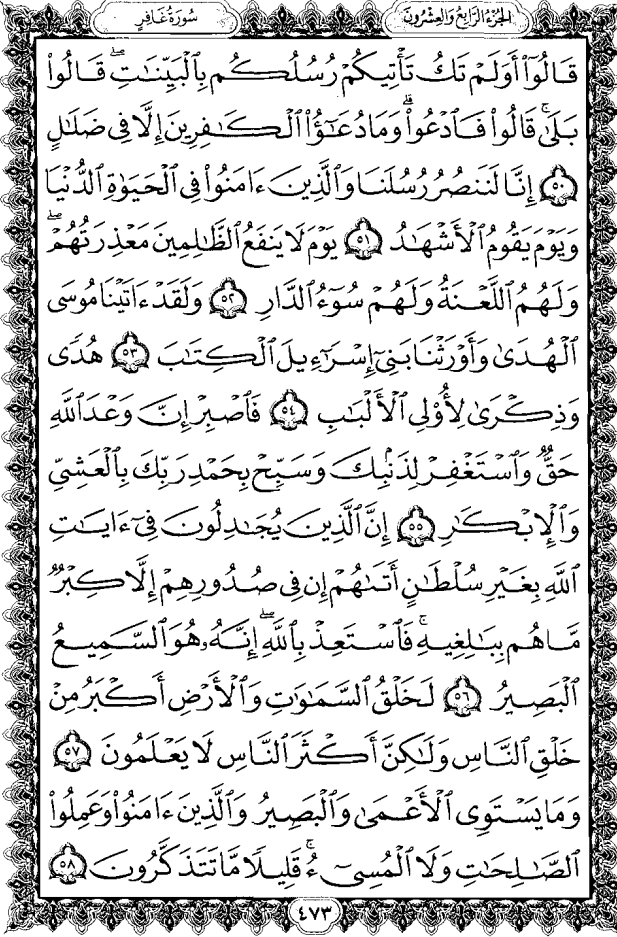 الجزء الرابع والعشرون
سورة غافر
قَالُوٓاْ أَوَلَمْ تَكُ تَأْتِيكُمْ رُسُلُكُم بِٱلْبَيِّنَٰتِۖ قَالُواْ
بَلَىٰۚ قَالُواْ فَٱدْعُواْۗ وَمَا دُعَٰٓؤُاْ ٱلْكَٰفِرِينَ إِلَّا فِى ضَلَٰلٍ
٥٠ إِنَّا لَنَنصُرُ رُسُلَنَا وَٱلَّذِينَ ءَامَنُواْ فِى ٱلْحَيَوٰةِ ٱلدُّنْيَا
وَيَوْمَ يَقُومُ ٱلْأَشْهَٰدُ ٥١ يَوْمَ لَا يَنفَعُ ٱلظَّٰلِمِينَ مَعْذِرَتُهُمْۖ
وَلَهُمُ ٱللَّعْنَةُ وَلَهُمْ سُوٓءُ ٱلدَّارِ ٥٢ وَلَقَدْ ءَاتَيْنَا مُوسَى
ٱلْهُدَىٰ وَأَوْرَثْنَا بَنِىٓ إِسْرَٰٓءِيلَ ٱلْكِتَٰبَ ٥٣ هُدًى
وَذِكْرَىٰ لِأُوْلِى ٱلْأَلْبَٰبِ ٥٤ فَٱصْبِرْ إِنَّ وَعْدَ ٱللَّهِ
حَقٌّ وَٱسْتَغْفِرْ لِذَنۢبِكَ وَسَبِّحْ بِحَمْدِ رَبِّكَ بِٱلْعَشِىِّ
وَٱلْإِبْكَٰرِ ٥٥ إِنَّ ٱلَّذِينَ يُجَٰدِلُونَ فِىٓ ءَايَٰتِ
ٱللَّهِ بِغَيْرِ سُلْطَٰنٍ أَتَىٰهُمْ إِن فِى صُدُورِهِمْ إِلَّا كِبْرٌ
مَّا هُم بِبَٰلِغِيهِۚ فَٱسْتَعِذْ بِٱللَّهِۖ إِنَّهُۥ هُوَ ٱلسَّمِيعُ
ٱلْبَصِيرُ ٥٦ لَخَلْقُ ٱلسَّمَٰوَٰتِ وَٱلْأَرْضِ أَكْبَرُ مِنْ
خَلْقِ ٱلنَّاسِ وَلَٰكِنَّ أَكْثَرَ ٱلنَّاسِ لَا يَعْلَمُونَ ٥٧
وَمَا يَسْتَوِى ٱلْأَعْمَىٰ وَٱلْبَصِيرُ وَٱلَّذِينَ ءَامَنُواْ وَعَمِلُواْ
ٱلصَّٰلِحَٰتِ وَلَا ٱلْمُسِىٓءُۚ قَلِيلًا مَّا تَتَذَكَّرُونَ ٥٨
٤٧٣